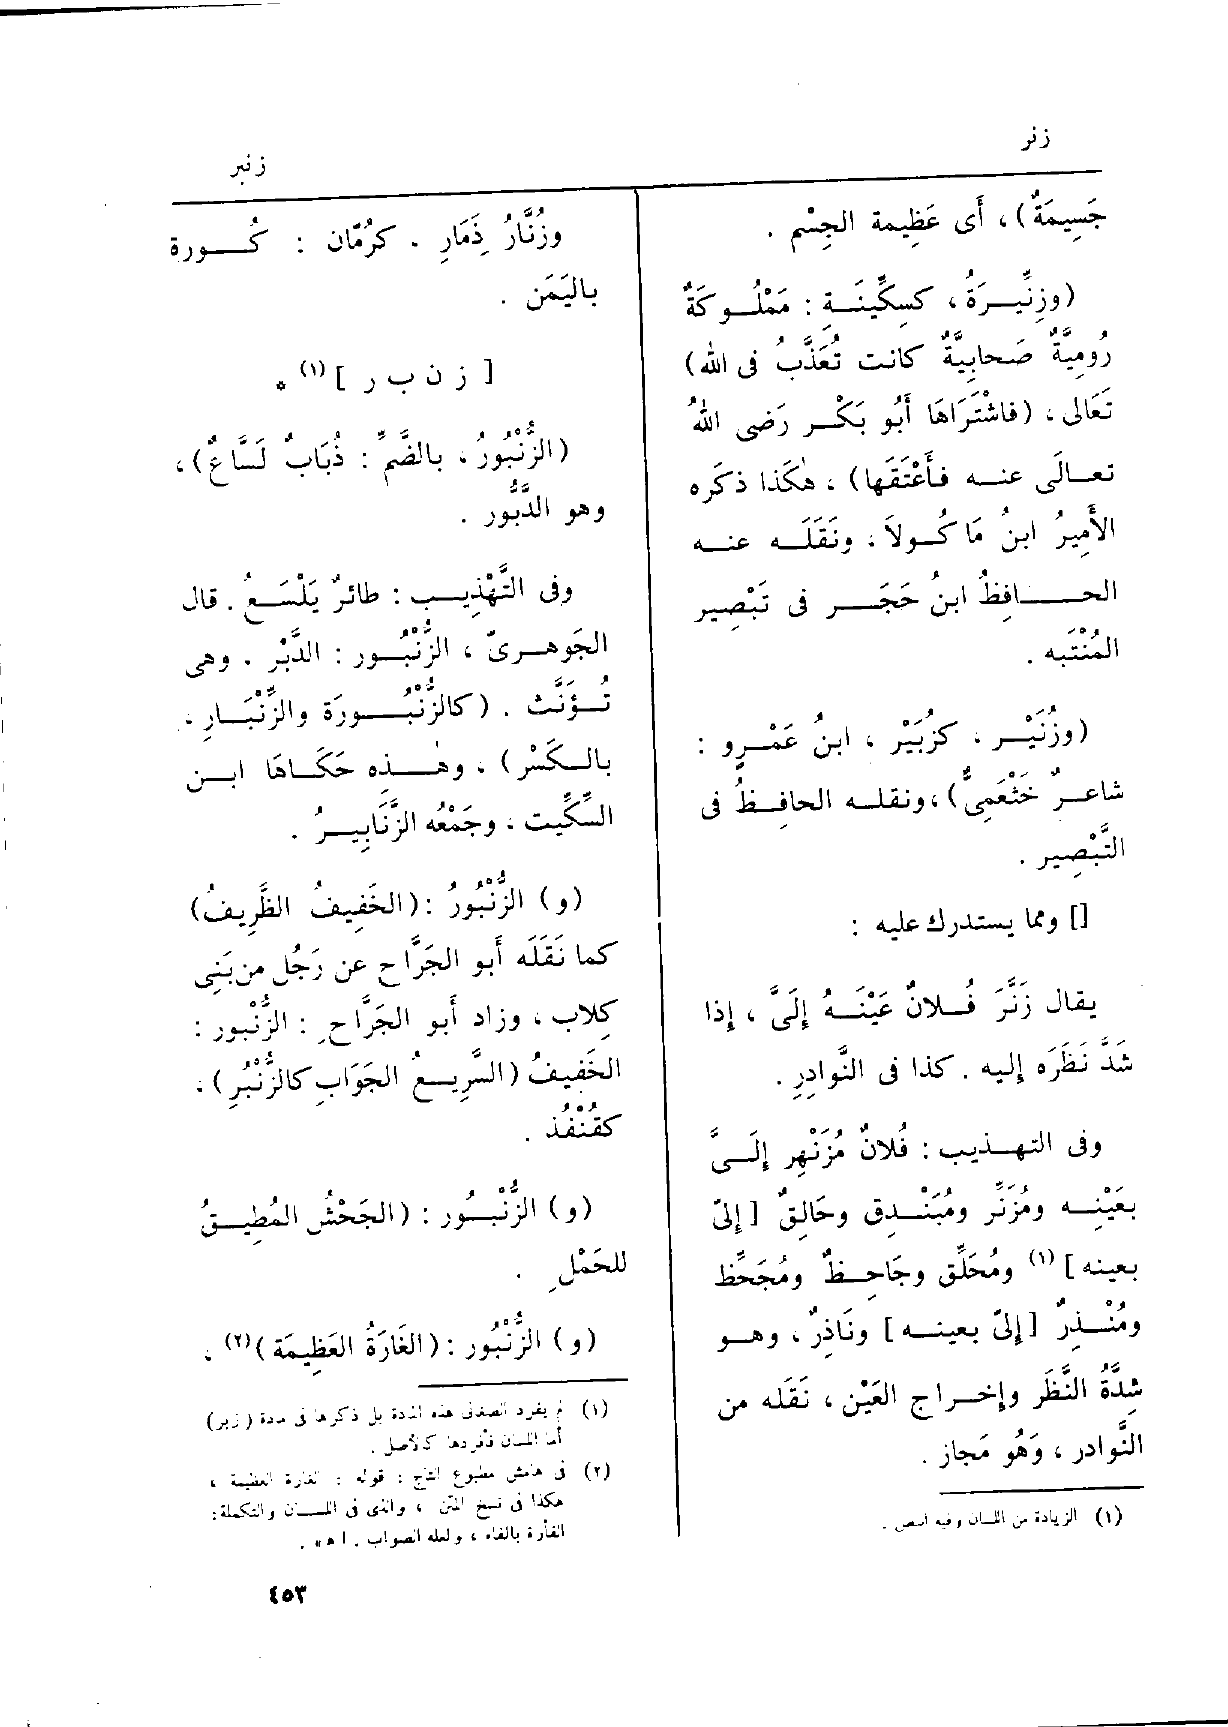 زنر
زنبر
جَسِيمَةٌ)، أَى عَظِيمة الجِسْم .
(وزِنِّيرَةُ، كسِكِّينَةٍ : مَمْلُوكَةٌ
رُومِيَّةٌ صَحابِيَّةٌ كانت تُعَذَّبُ فى الله)
تَعَالى، (فاشْتَرَاهَا أَبُو بَكْر رَضى اللهُ
تعالَى عنه فأَعْتَقَها) ، هٰكَذا ذكَره
الأَمِيرُ ابنُ مَا كُولاَ، ونَقَلَه عنه
الحافِظُ ابنُ حَجَر فى تَبْصِير
المُنْتَبه .
(وزُنَيْر ، كزُبَيْر ، ابنُ عَمْرٍو :
شاعرٌ خَثْعَمِىٌّ)، ونقله الحافِظُ فى
التَّبْصِير .
[] ومما يستدرك عليه :
يقال زَنَّرَ فُلانٌ عَيْنَهُ إِلَىَّ ، إِذا
شَدَّ نَظَرَه إِليه . كذا فى النَّوادِرِ .
وفى التهذيب : فُلانٌ مُزَنْهِر إِلَىَّ
بعَيْنِه ومُزَنِّر ومُبَنْدِق وحَالِقٌ [إِلىّ
بعينه] (١) ومُحَلِّق وجَاحِظٌ ومُجَحِّظ
ومُنْذِرٌ [إِلىّ بعينه] ونَاذِرٌ ، وهو
شِدَّةُ النَّظَر وإِخراج العَيْن ، نَقَله من
النَّوادر ، وَهُو مَجاز .
(١) الزيادة من اللسان وفيه النص .
وزُنَّارُ ذِمَارِ . كرُمّان : كُورة
باليَمَن .
[ ز ن ب ر ] (١) *
(الزُّنْبُورُ ، بالضَّمِّ : ذُبَابٌ لَسَّاعٌ)،
وهو الدَّبُّور .
وفى التَّهْذِيب : طائرٌ يَلْسَعُ . قال
الجَوهرىّ ، الزُّنْبُور : الدَّبْر . وهى
تُؤَنَّث . (كالزُّنْبُورَة والزِّنْبَارِ ،
بالكَسْر) ، وهٰذِه حَكَاهَا ابن
السِّكِّيت ، وجَمْعُه الزَّنَابِيرُ .
(و) الزُّنْبُورُ : (الخَفِيفُ الظَّرِيفُ)
كما نَقَلَه أَبو الجَرَّاح عن رَجُل من بَنِى
كِلاب ، وزاد أَبو الجَرَّاحِ : الزُّنْبور :
الخَفِيفُ (السَّرِيعُ الجَوَابِ كالزُّنْبُرِ) ،
كقُنْفُذ .
(و) الزُّنْبُور : (الجَحْشُ المُطِيقُ
للحَمْلِ .
(و) الزُّنْبُور : (الغَارَةُ العَظِيمَة) (٢) .
(١) لم يفرد الصغانى هذه المادة بل ذكرها فى مادة (زبر)
أما اللسان فأفردها كالأصل .
(٢) فى هامش مطبوع التاج : قوله : الغارة العظيمة ،
هكذا فى نسخ المتن ، والذى فى اللسان والتكملة :
الفأرة بالفاء ، ولعله الصواب . ا ه» .
٤٥٣